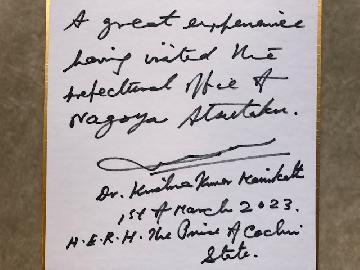 A great experience
having visited the
prefectural office of
Nagoya
Dr. Krishna Kumar
1st of March 2023.
H.E.R.H. The Prince of Cochin
State.